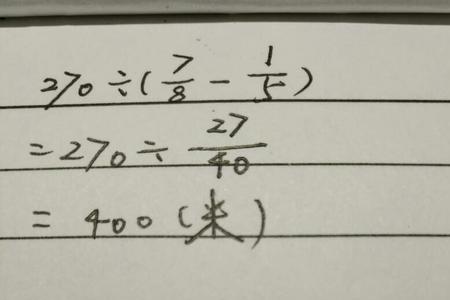 270÷(7/8-1/5)
=270÷27/40
=400(米)